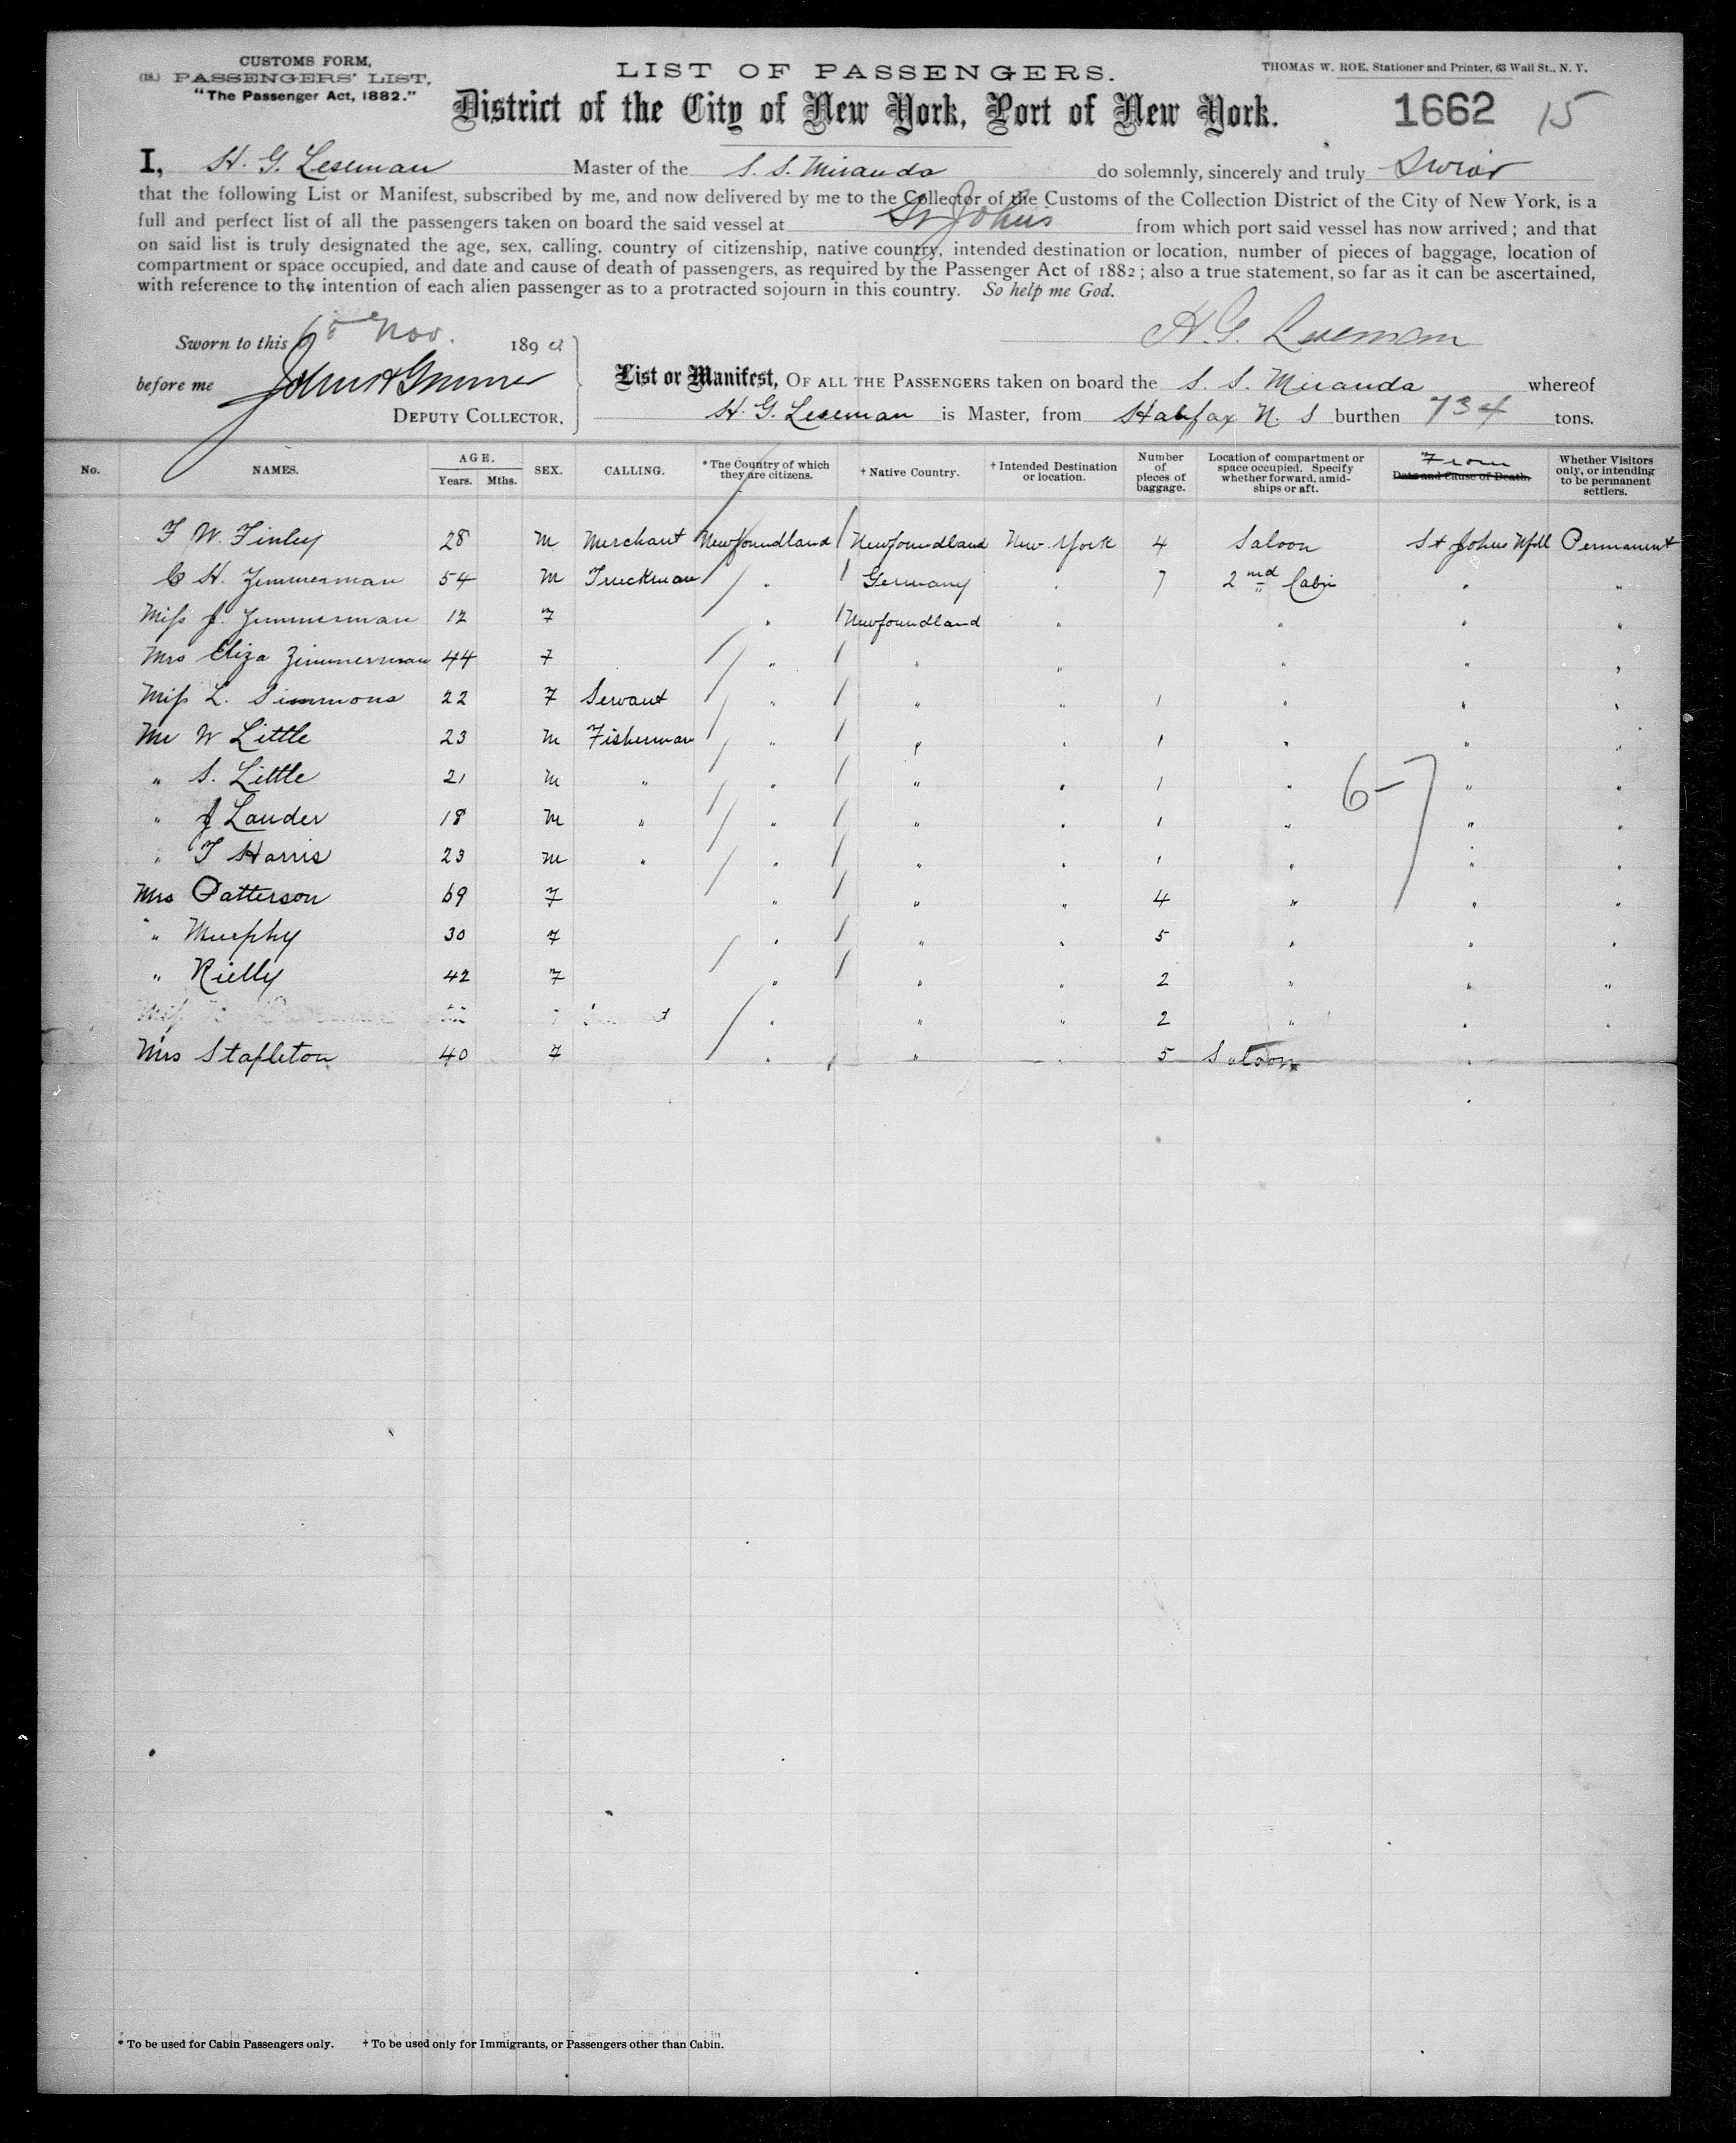 CUSTOMS FORM,
(18.) PASSENGERS' LIST,
"The Passenger Act, 1882."
LIST OF PASSENGERS.
THOMAS W. ROE, Stationer and Printer, 63 Wall St., N. Y.
District of the City of New York, Port of New York.
1662 15
I, H. G. Leseman Master of the S. S. Miranda do solemnly, sincerely and truly Swear
that the following List or Manifest, subscribed by me, and now delivered by me to the Collector of the Customs of the Collection District of the City of New York, is a
full and perfect list of all the passengers taken on board the said vessel at St Johns from which port said vessel has now arrived; and that
on said list is truly designated the age, sex, calling, country of citizenship, native country, intended destination or location, number of pieces of baggage, location of
compartment or space occupied, and date and cause of death of passengers, as required by the Passenger Act of 1882; also a true statement, so far as it can be ascertained,
with reference to the intention of each alien passenger as to a protracted sojourn in this country. So help me God.
Sworn to this 6 Nov. 189
H. G. Leseman
before me
DEPUTY COLLECTOR.
List or Manifest, OF ALL THE PASSENGERS taken on board the S. S. Miranda whereof
H. G. Leseman is Master, from Halifax N. S burthen 734 tons.
No. NAMES. AGE. Years. Mths. SEX. CALLING. * The Country of which they are citizens. † Native Country. † Intended Destination or location. Number of pieces of baggage. Location of compartment or space occupied. Specify whether forward, amidships or aft. From Date and Cause of Death. Whether Visitors only, or intending to be permanent settlers.
F W. Finley 28 M Merchant Newfoundland Newfoundland New York 4 Saloon St Johns Nfll Permanent
C H. Zimmerman 54 M Truckman " Germany " 7 2nd Cabin " "
Miss J. Zimmerman 12 F " Newfoundland " " " "
Mrs Eliza Zimmerman 44 F " " " " " "
Miss L. Simmons 22 F Servant " " " 1 " " "
Mr W Little 23 M Fisherman " " " 1 " " "
" S. Little 21 M " " " " 1 " " "
" J Lauder 18 M " " " " 1 " " "
" T Harris 23 M " " " " 1 " " "
Mrs Patterson 69 F " " " 4 " " "
" Murphy 30 F " " " 5 " " "
" Rielly 42 F " " " 2 " " "
Miss " " " 2 " " "
Mrs Stapleton 40 F " " " 5 Saloon "
67
* To be used for Cabin Passengers only. † To be used only for Immigrants, or Passengers other than Cabin.